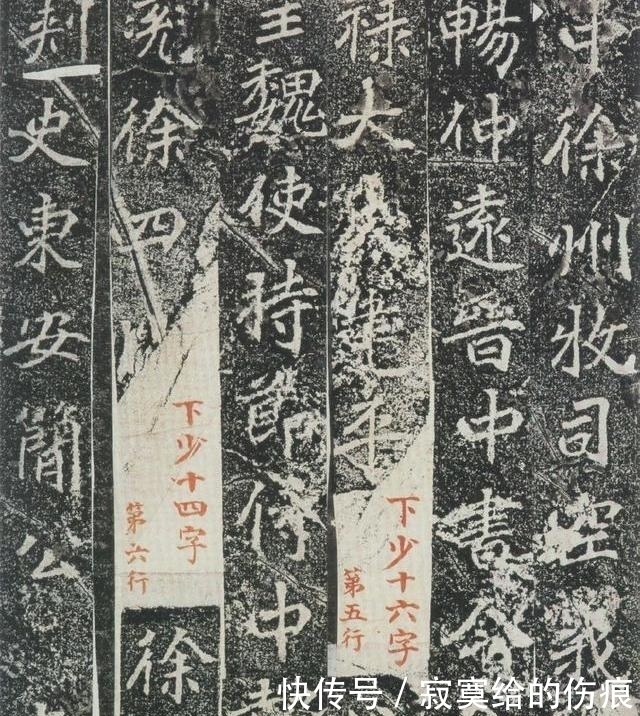 中徐州牧司空
暢仲遠晉中書令
祿大夫建平
下少十六字
第五行
王魏使持節侍中
兗徐四州
下少十四字
第六行
徐
刺史東安簡公
快传号/寂寞给的伤痕